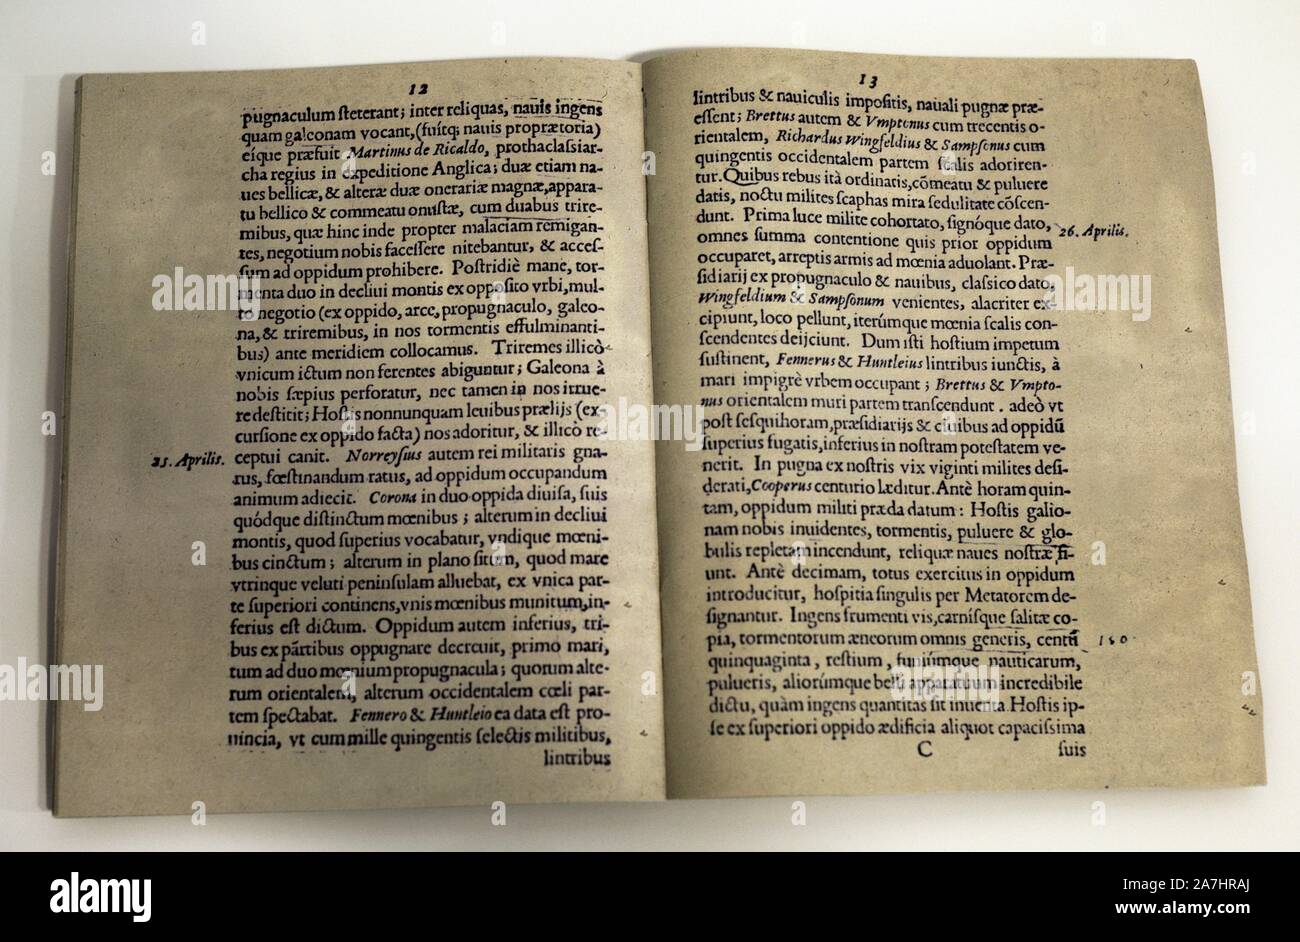 12
pugnaculum ſteterant; inter reliquas, nauis ingens
quam galeonam vocant, (fuitq; nauis proprætoria)
eique præfuit Martinus de Ricaldo, prothaclaſsiar-
cha regius in expeditione Anglica; duæ etiam na-
ues bellicæ, & alteræ duæ onerariæ magnæ, appara-
tu bellico & commeatu onuſtæ, cum duabus trire-
mibus, quæ hinc inde propter malaciam remigan-
tes, negotium nobis faceſſere nitebantur, & acceſ-
ſum ad oppidum prohibere. Poſtridiè mane, tor-
menta duo in decliui montis ex oppoſito vrbi, mul-
to negotio (ex oppido, arce, propugnaculo, galeo-
na, & triremibus, in nos tormentis effulminanti-
bus) ante meridiem collocamus. Triremes illicò
vnicum ictum non ferentes abiguntur; Galeona à
nobis ſæpius perforatur, nec tamen in nos irrue-
re deſtitit; Hoſtis nonnunquam leuibus prælijs (ex-
curſione ex oppido facta) nos adoritur, & illicò re-
25. Aprilis. ceptui canit. Norreyſius autem rei militaris gna-
rus, fœſtinandum ratus, ad oppidum occupandum
animum adiecit. Corona in duo oppida diuiſa, ſuis
quódque diſtinctum mœnibus; alterum in decliui
montis, quod ſuperius vocabatur, vndique mœni-
bus cinctum; alterum in plano ſitum, quod mare
vtrinque veluti peninſulam alluebat, ex vnica par-
te ſuperiori continens, vnis mœnibus munitum, in-
ferius eſt dictum. Oppidum autem inferius, tri-
bus ex pártibus oppugnare decreuit, primo mari,
tum ad duo mœnium propugnacula; quorum alte-
rum orientalem, alterum occidentalem cœli par-
tem ſpectabat. Fennero & Huntleio ea data eſt pro-
uincia, vt cum mille quingentis ſelectis militibus,
lintribus
13
lintribus & nauiculis impoſitis, nauali pugnæ præ-
eſſent; Brettus autem & Vmptonus cum trecentis o-
rientalem, Richardus Wingfeldius & Sampſonus cum
quingentis occidentalem partem ſcalis adoriren-
tur. Quibus rebus ità ordinatis, cōmeatu & puluere
datis, noctu milites ſcaphas mira ſedulitate cōſcen-
dunt. Prima luce milite cohortato, ſignóque dato, 26. Aprilis.
omnes ſumma contentione quis prior oppidum
occuparet, arreptis armis ad mœnia aduolant. Præ-
ſidiarij ex propugnaculo & nauibus, claſsico dato,
Wingfeldium & Sampſonum venientes, alacriter ex-
cipiunt, loco pellunt, iterúmque mœnia ſcalis con-
ſcendentes deijciunt. Dum iſti hoſtium impetum
ſuſtinent, Fennerus & Huntleius lintribus iunctis, à
mari impigrè vrbem occupant; Brettus & Vmpto-
nus orientalem muri partem tranſcendunt. adeò vt
poſt ſeſquihoram, præſidiarijs & ciuibus ad oppidū
ſuperius fugatis, inferius in noſtram poteſtatem ve-
nerit. In pugna ex noſtris vix viginti milites deſi-
derati, Cooperus centurio læditur. Antè horam quin-
tam, oppidum militi præda datum: Hoſtis galio-
nam nobis inuidentes, tormentis, puluere & glo-
bulis repletam incendunt, reliquæ naues noſtræ fi-
unt. Antè decimam, totus exercitus in oppidum
introducitur, hoſpitia ſingulis per Metatorem de-
ſignantur. Ingens frumenti vis, carníſque ſalitæ co-
pia, tormentorum æneorum omnis generis, centū 150
quinquaginta, reſtium, funiúmque nauticarum,
pulueris, aliorúmque belli apparatuum incredibile
dictu, quàm ingens quantitas ſit inuenta. Hoſtis ip-
ſe ex ſuperiori oppido ædificia aliquot capaciſsima
C ſuis
alamy
Image ID: 2A7HRAJ
www.alamy.com